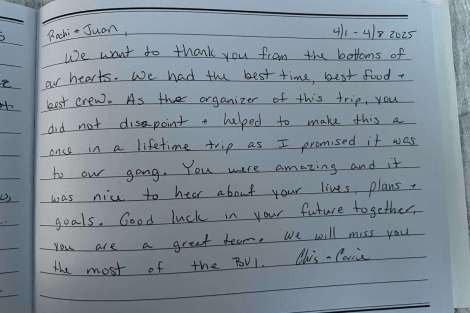 Rochi + Juan, 4/1 - 4/8 2025
We want to thank you from the bottoms of
our hearts. We had the best time, best food +
best crew. As the organizer of this trip, you
did not disapoint + helped to make this a
once in a lifetime trip as I promised it was
to our gang. You were amazing and it
was nice to hear about your lives, plans +
goals. Good luck in your future together,
you are a great team. We will miss you
the most of the BVI. Chris + Carrie